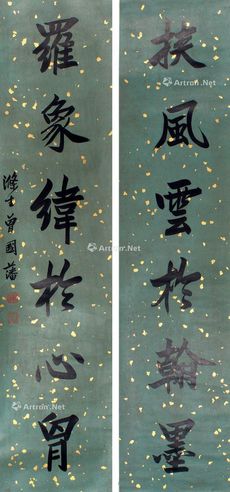 挟風雲於翰墨
羅象緯於心胃
滌生曾國藩
Artron.Net
Artron.Net
Artron.Net
Artron.Net